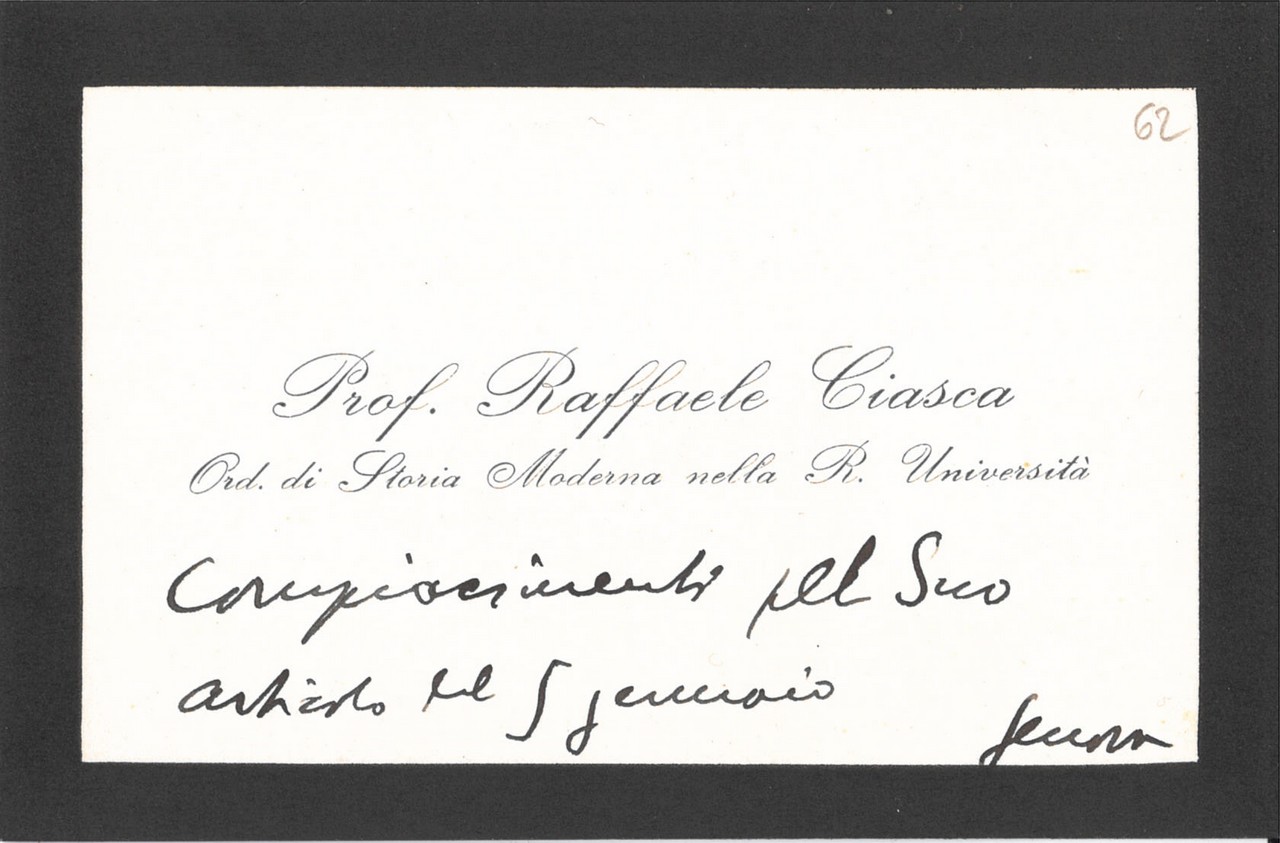 62
Prof. Raffaele Ciasca
Ord. di Storia Moderna nella R. Università
Compiacimenti pel Suo
articolo del 5 gennaio
Genova